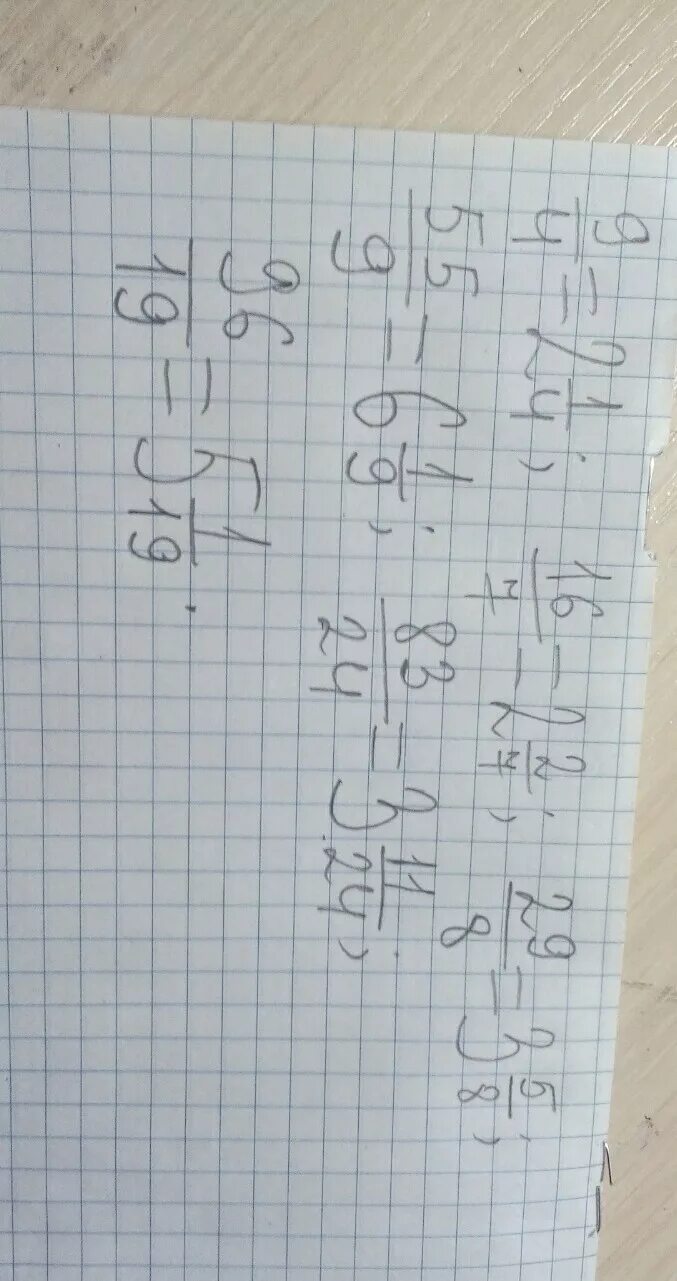 9/4 = 2 1/4; 16/7 = 2 2/7; 29/8 = 3 5/8;
55/9 = 6 1/9; 83/24 = 3 11/24;
96/19 = 5 1/19.